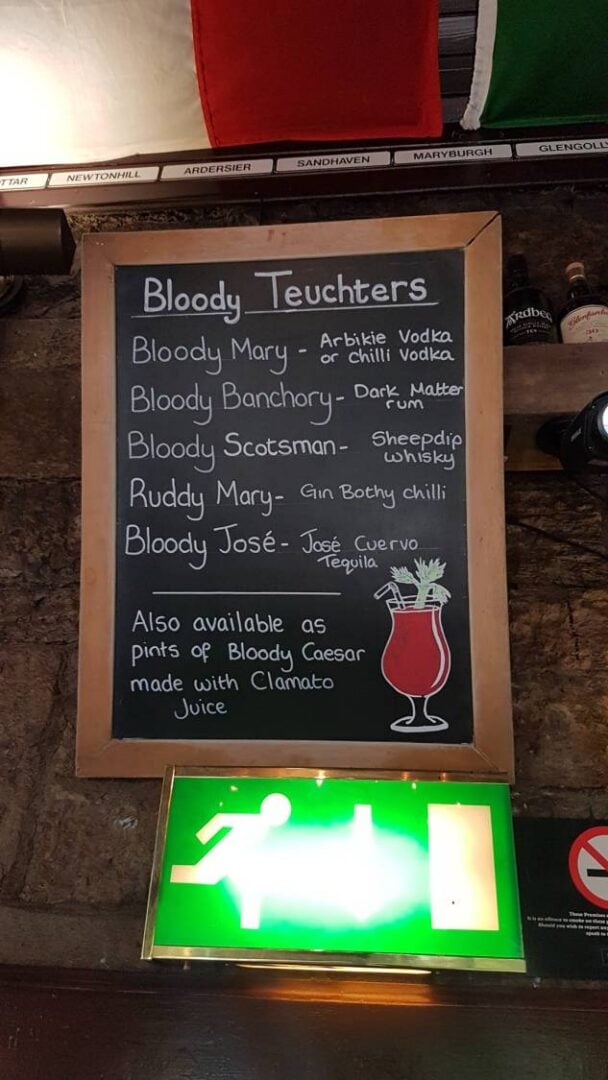 TTAR NEWTONHILL ARDERSIER SANDHAVEN MARYBURGH GLENGOLLY
Bloody Teuchters
Bloody Mary - Arbikie Vodka
or chilli Vodka
Bloody Banchory - Dark Matter
rum
Bloody Scotsman - Sheepdip
whisky
Ruddy Mary - Gin Bothy chilli
Bloody José - José Cuervo
Tequila
Also available as
pints of Bloody Caesar
made with Clamato
Juice
ARDBEG
Glenfarclas
30
These Premises
It is an offence to smoke